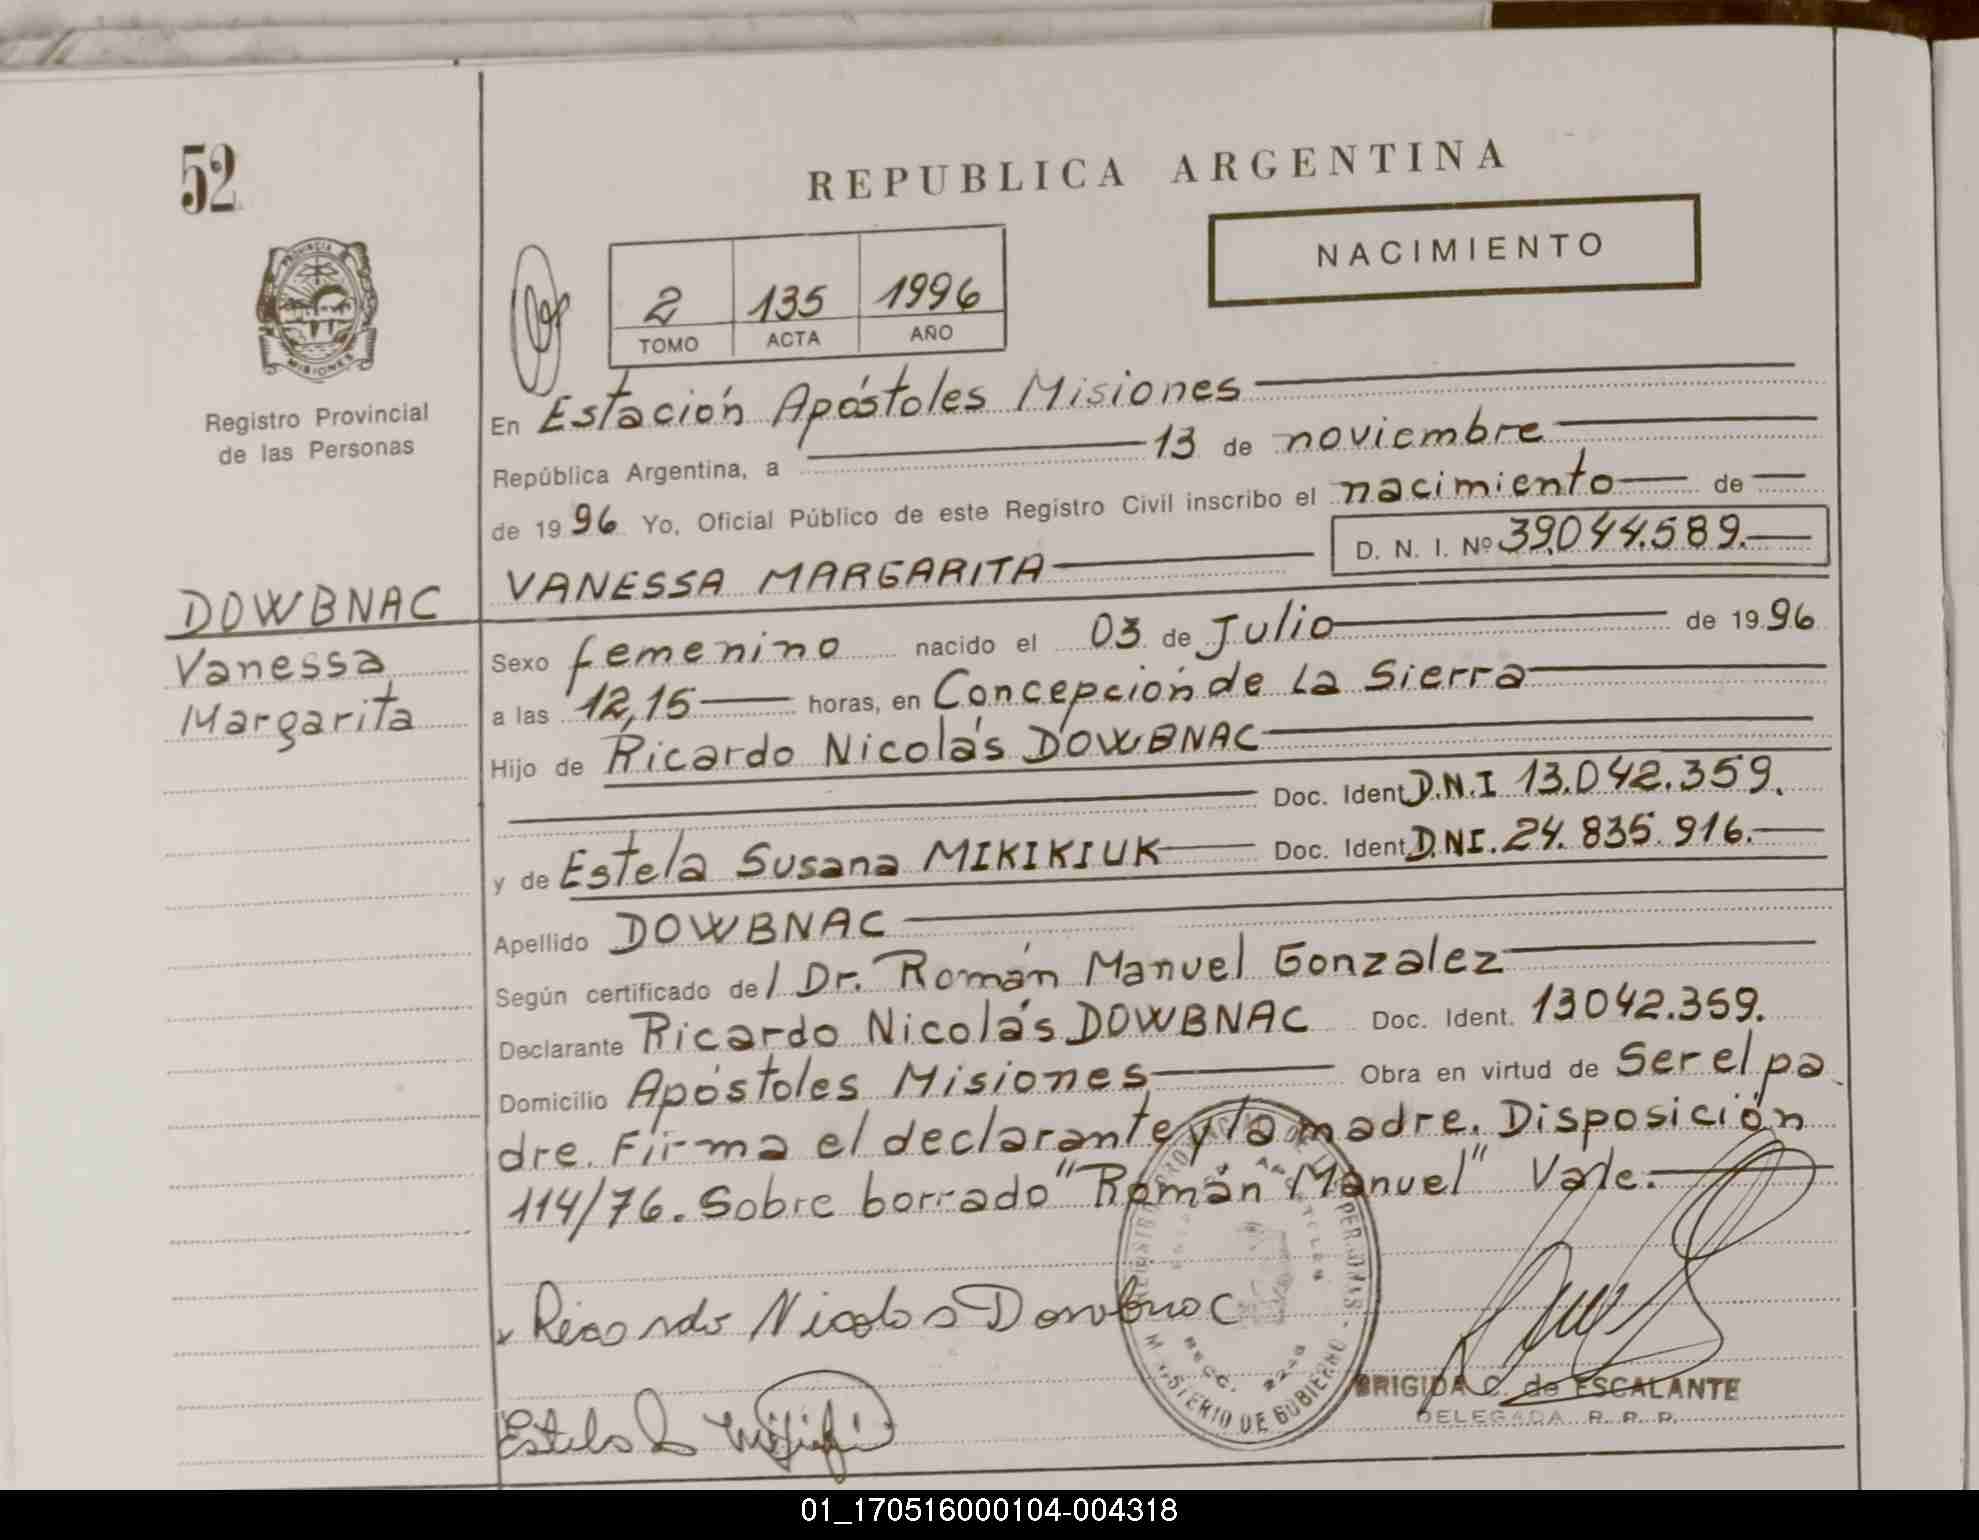 52
REPUBLICA ARGENTINA
NACIMIENTO
PROVINCIA
MISIONES
Registro Provincial
de las Personas
2 135 1996
TOMO ACTA AÑO
En Estación Apóstoles Misiones
República Argentina, a 13 de noviembre
de 1996 Yo, Oficial Público de este Registro Civil inscribo el nacimiento de
VANESSA MARGARITA D. N. I. Nº 39.044.589.
DOWBNAC
Vanessa
Margarita
Sexo femenino nacido el 03 de Julio de 1996
a las 12,15 horas, en Concepción de La Sierra
Hijo de Ricardo Nicolás DOWBNAC
Doc. Ident. D.N.I 13.042.359.
y de Estela Susana MIKIKIUK Doc. Ident. DNI. 24.835.916.
Apellido DOWBNAC
Según certificado del Dr. Román Manuel Gonzalez
Declarante Ricardo Nicolás DOWBNAC Doc. Ident. 13042.359.
Domicilio Apóstoles Misiones Obra en virtud de Ser el pa
dre. Firma el declarante y la madre. Disposición
114/76. Sobre borrado "Román Manuel" Vale.
x Ricardo Nicolas Dowbnac
Estela S
MINISTERIO DE GOBIERNO
BRIGIDA C. de ESCALANTE
DELEGADA R. P. P.
01_170516000104-004318